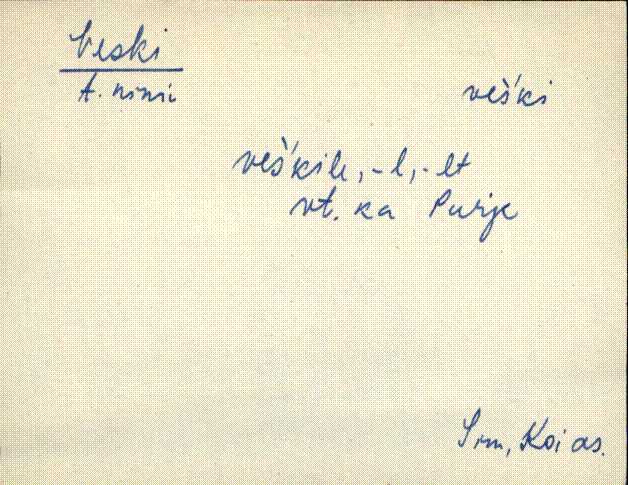 Veski
t. nimi
veš́ki
veš́kile, -l, -lt
vt. ka Purje
Srm, Koi as.